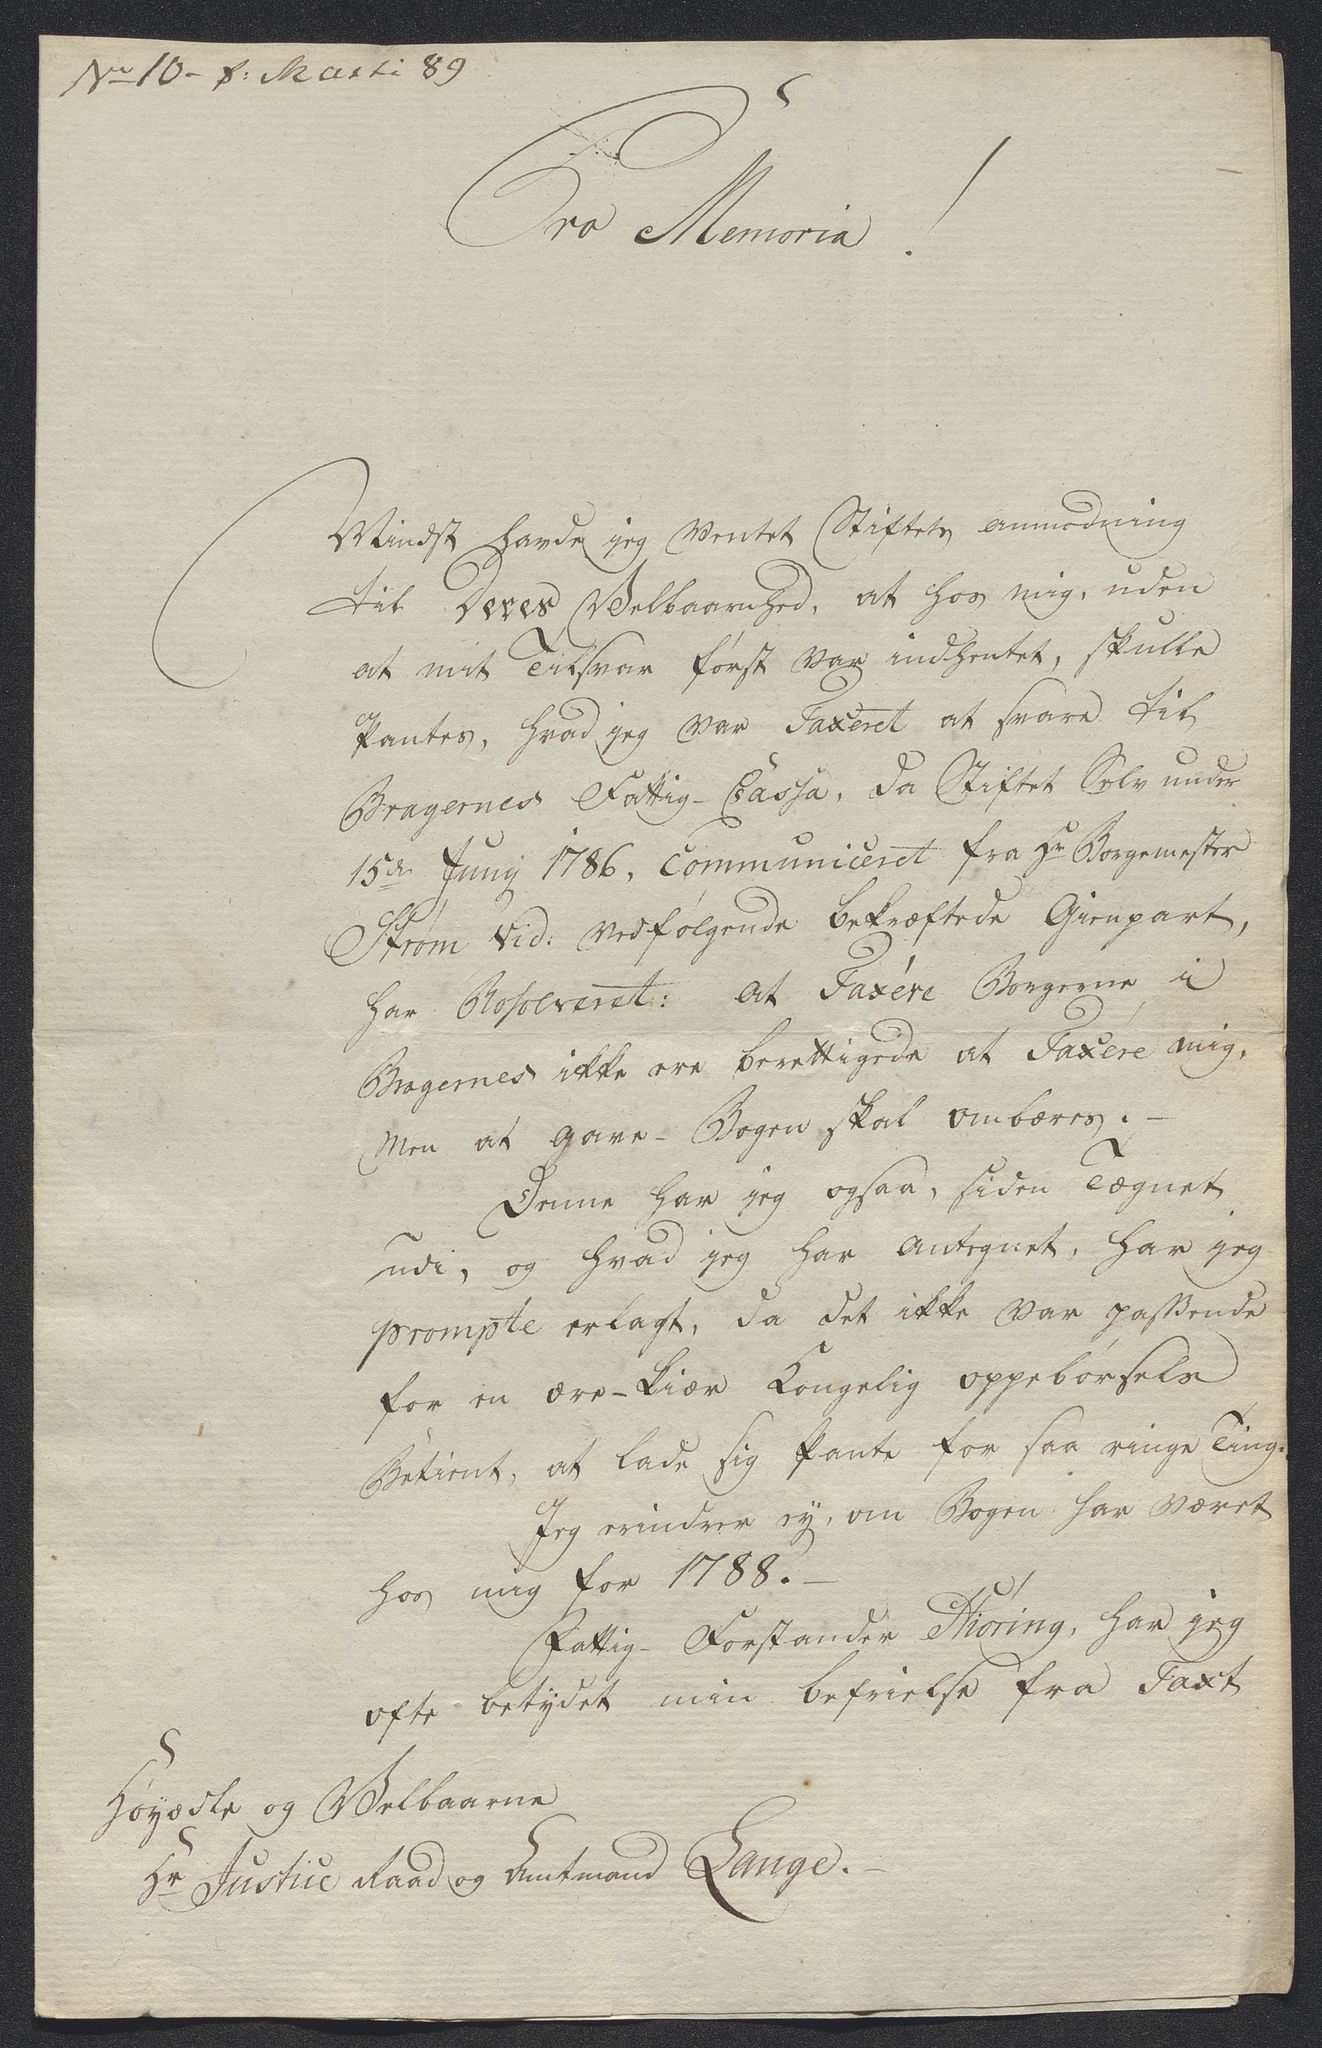 No 10 - p: Marti 89
Pro Memoria!
Mindst havde jeg ventet Stiftets anmodning
til Deres Velbaarnhed, at hos mig, uden
at mit Tilsvar først var indhentet, skulle
Pantes, hvad jeg var Taxeret at svare til
Bragernes Fattig-Cassa, da Stiftet Selv under
15de Junij 1786, Communiceret fra Hr Borgemester
Strøm vid: vedfølgende bekræftede Gienpart,
har Resolveret: at Taxére Borgerne i
Bragernes ikke ere berettigede at Taxére mig,
Men at Gave-Bogen skal ombæres. -
Denne har jeg ogsaa, siden Tægnet
udi, og hvad jeg har antegnet, har jeg
prompte erlagt, da det ikke var passende
for en ære-kiær Kongelig oppebørsels
Betient, at lade sig Pante for saa ringe Ting.
Jeg erindrer ey, om Bogen har været
hos mig for 1788. -
Fattig-Forstander Thöring, har jeg
ofte betydet min befrielse fra Taxt
Høyædle og Velbaarne
Hr Justice Raad og Amtmand Lange. -